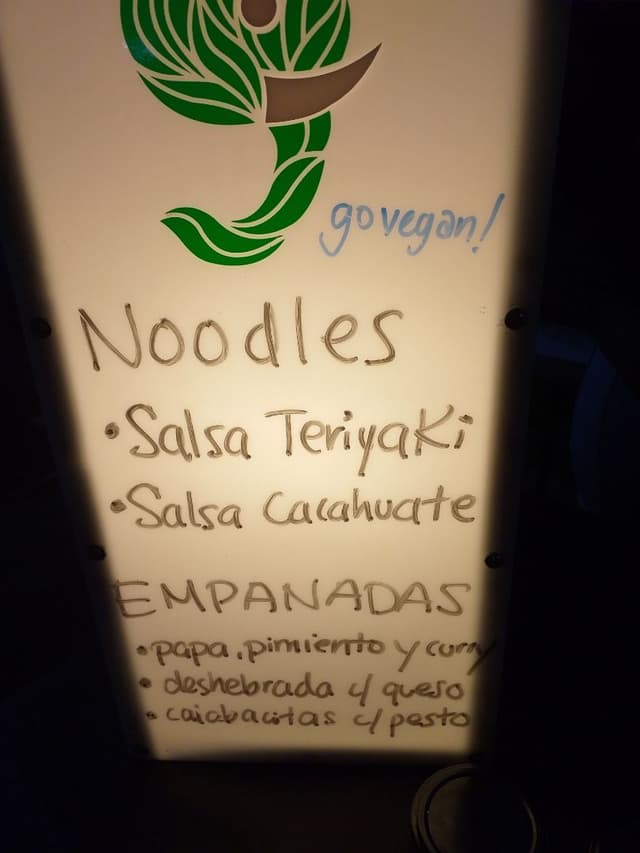 go vegan!
Noodles
•Salsa Teriyaki
•Salsa Cacahuate
EMPANADAS
•papa, pimiento y curry
• deshebrada c/ queso
• calabacitas c/ pesto